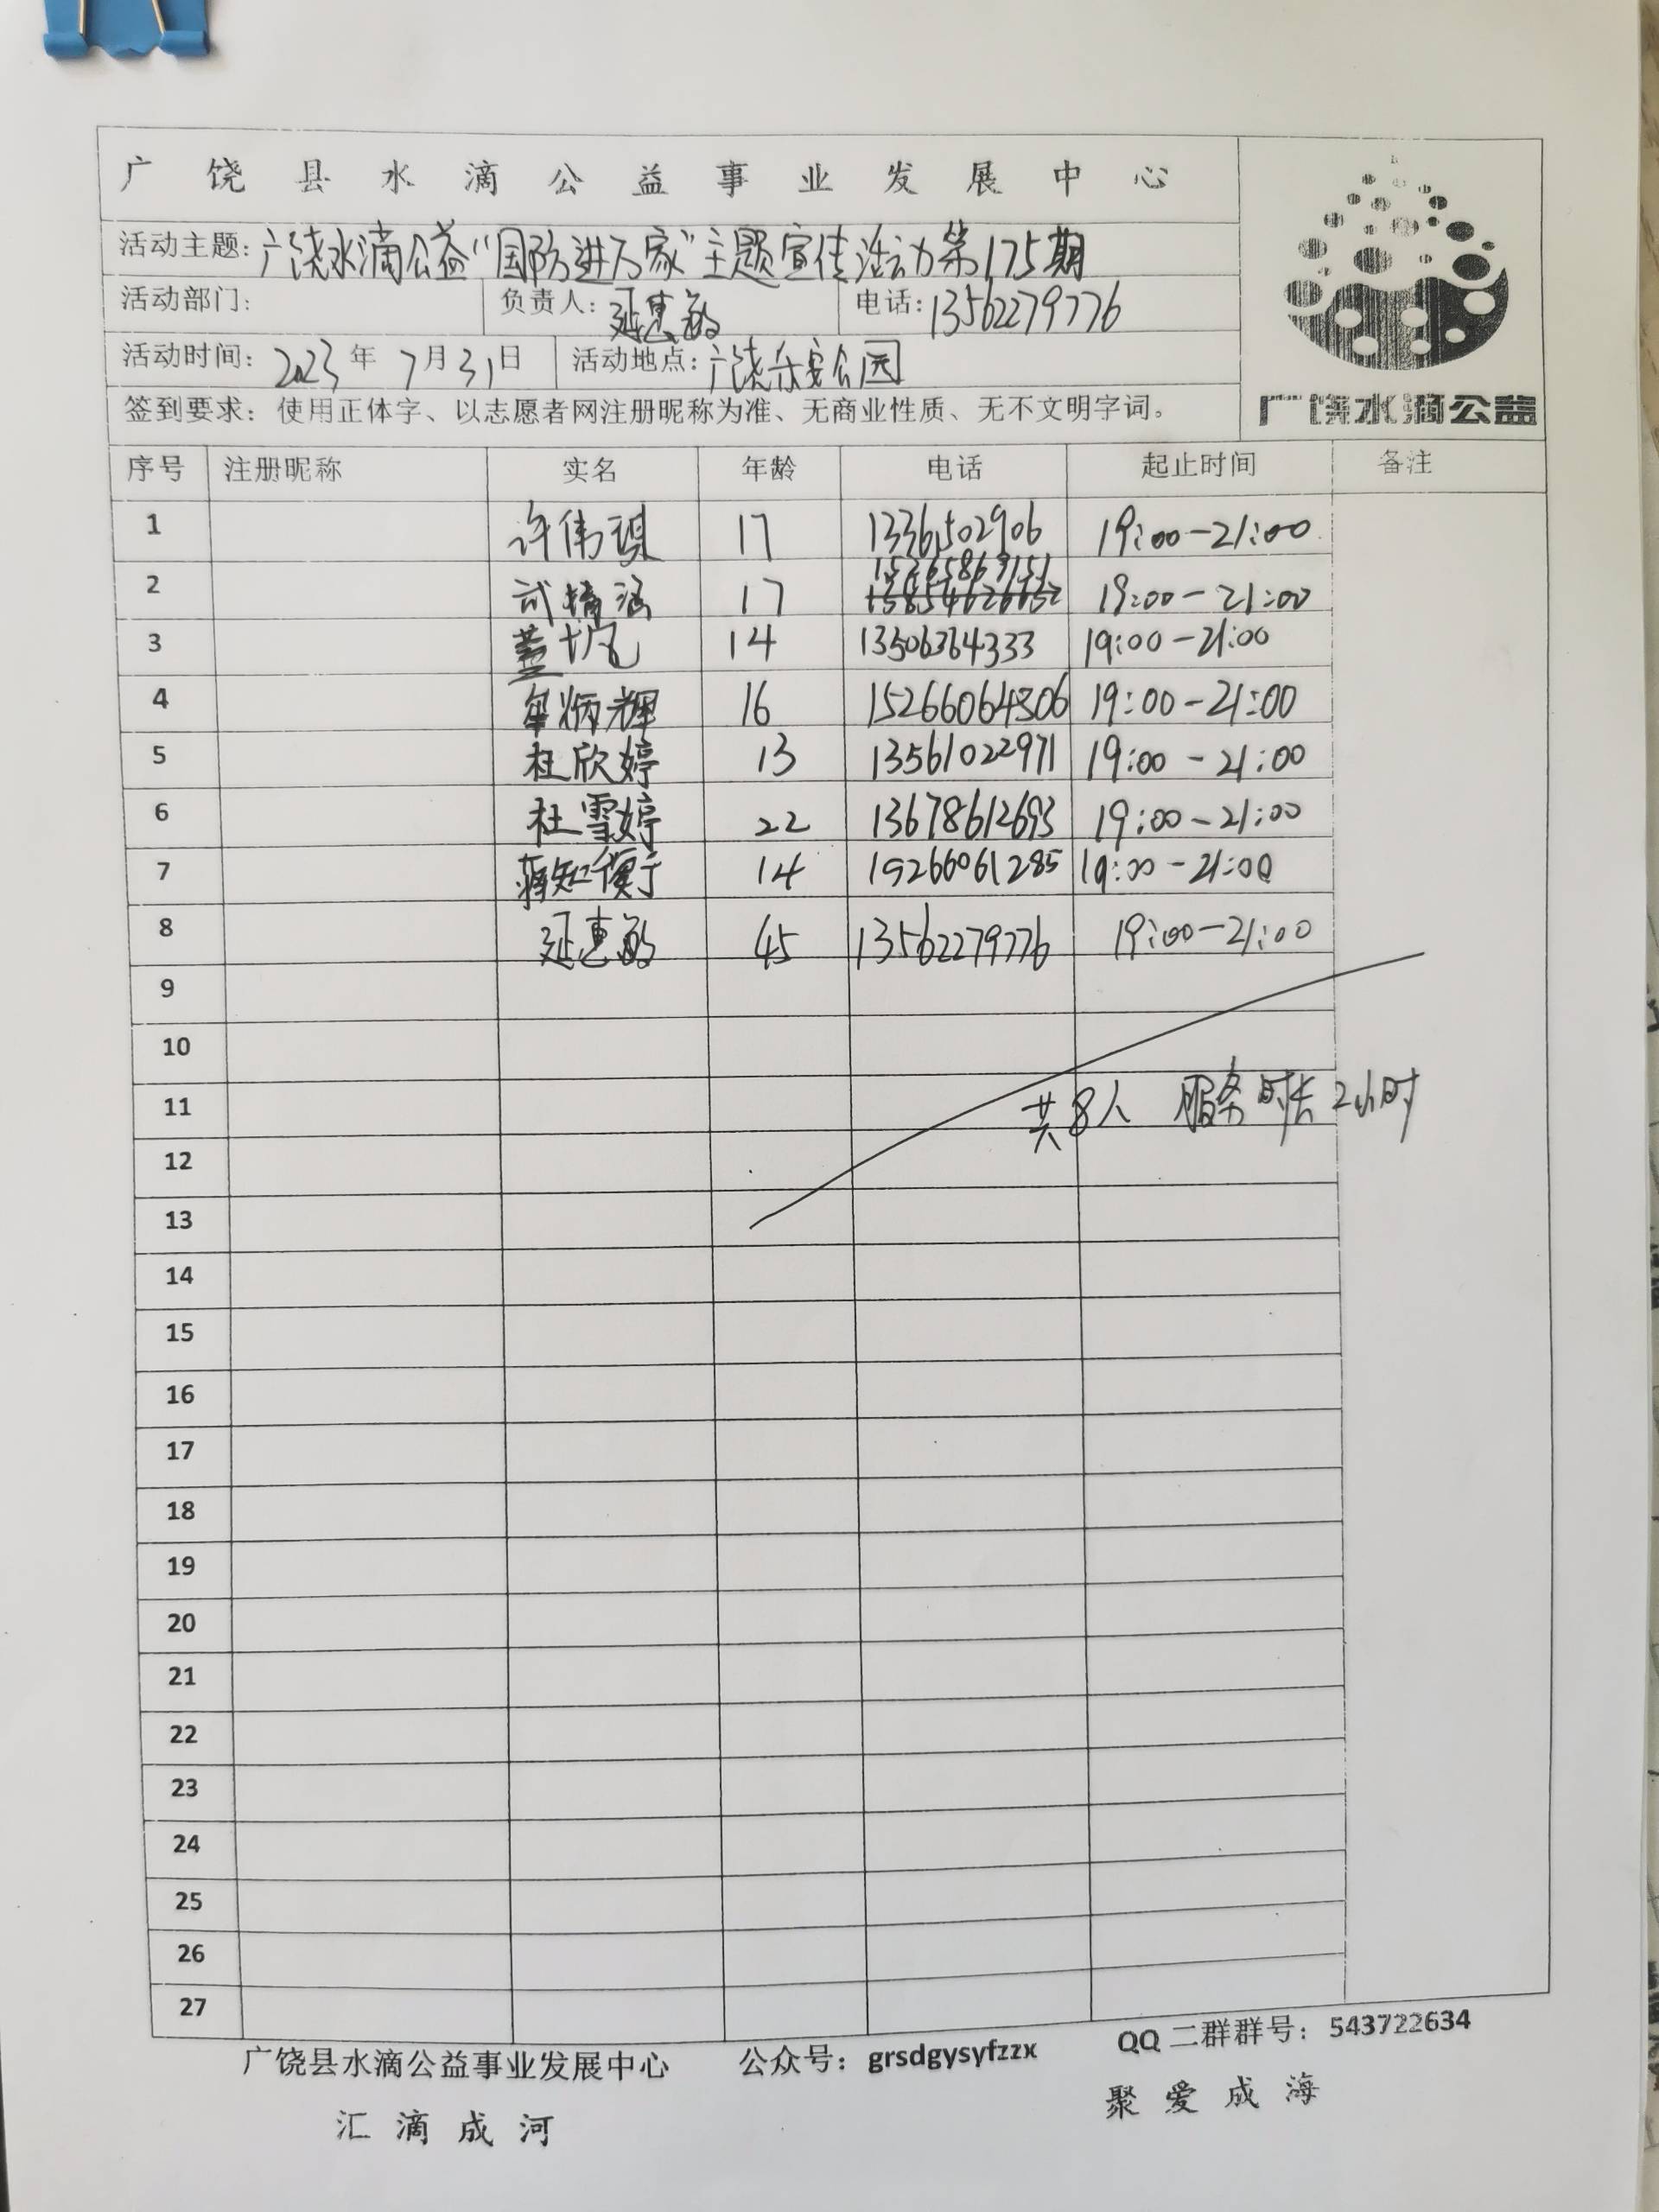 广饶县水滴公益事业发展中心
活动主题:广饶水滴公益“国防进万家”主题宣传活动第175期
活动部门: 负责人:延惠敏 电话:13562279776
活动时间:2023年7月31日 活动地点:广饶乐安公园
签到要求:使用正体字、以志愿者网注册昵称为准、无商业性质、无不文明字词。
广饶水滴公益
序号 注册昵称 实名 年龄 电话 起止时间 备注
1 许伟琪 17 13361502906 19:00-21:00
2 17 19:00-21:00
3 14 13506364333 19:00-21:00
4 炳辉 16 15266064306 19:00-21:00
5 杜欣婷 13 13561022971 19:00-21:00
6 杜雪婷 22 13678612693 19:00-21:00
7 蒋知 14 19266061285 19:00-21:00
8 延惠敏 45 13562279776 19:00-21:00
9
10
11 共8人 服务时长2小时
12
13
14
15
16
17
18
19
20
21
22
23
24
25
26
27
广饶县水滴公益事业发展中心 公众号:grsdgysyfzzx QQ二群群号:543722634
汇滴成河 聚爱成海